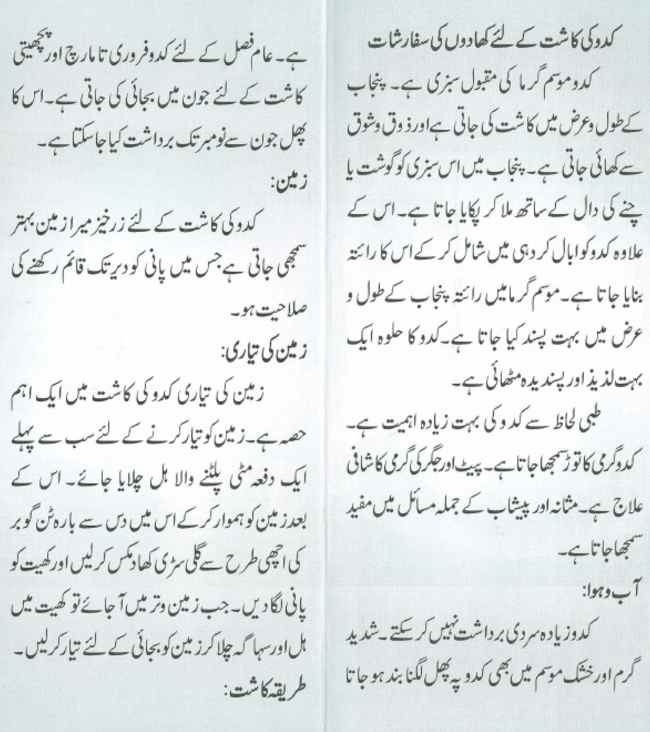 کدو کی کاشت کے لئے کھادوں کی سفارشات
کدو موسم گرما کی مقبول سبزی ہے۔ پنجاب
کے طول و عرض میں کاشت کی جاتی ہے اور ذوق و شوق
سے کھائی جاتی ہے۔ پنجاب میں اس سبزی کو گوشت یا
چنے کی دال کے ساتھ ملا کر پکایا جاتا ہے۔ اس کے
علاوہ کدو کو ابال کر دہی میں شامل کر کے اس کا رائتہ
بنایا جاتا ہے۔ موسم گرما میں رائتہ پنجاب کے طول و
عرض میں بہت پسند کیا جاتا ہے۔ کدو کا حلوہ ایک
بہت لذیذ اور پسندیدہ مٹھائی ہے۔
طبی لحاظ سے کدو کی بہت زیادہ اہمیت ہے۔
کدو گرمی کا توڑ سمجھا جاتا ہے۔ پیٹ اور جگر کی گرمی کا شافی
علاج ہے۔ مثانہ اور پیشاب کے جملہ مسائل میں مفید
سمجھا جاتا ہے۔
آب و ہوا:
کدو زیادہ سردی برداشت نہیں کر سکتے۔ شدید
گرم اور خشک موسم میں بھی کدو پہ پھل لگنا بند ہو جاتا
ہے۔ عام فصل کے لئے کدو فروری تا مارچ اور پچھیتی
کاشت کے لئے جون میں بجائی کی جاتی ہے۔ اس کا
پھل جون سے نومبر تک برداشت کیا جا سکتا ہے۔
زمین:
کدو کی کاشت کے لئے زرخیز میرا زمین بہتر
سمجھی جاتی ہے جس میں پانی کو دیر تک قائم رکھنے کی
صلاحیت ہو۔
زمین کی تیاری:
زمین کی تیاری کدو کی کاشت میں ایک اہم
حصہ ہے۔ زمین کو تیار کرنے کے لئے سب سے پہلے
ایک دفعہ مٹی پلٹنے والا ہل چلایا جائے۔ اس کے
بعد زمین کو ہموار کر کے اس میں دس سے بارہ ٹن گوبر
کی اچھی طرح سے گلی سڑی کھاد مکس کر لیں اور کھیت کو
پانی لگا دیں۔ جب زمین وتر میں آ جائے تو کھیت میں
ہل اور سہاگہ چلا کر زمین کو بجائی کے لئے تیار کر لیں۔
طریقہ کاشت: